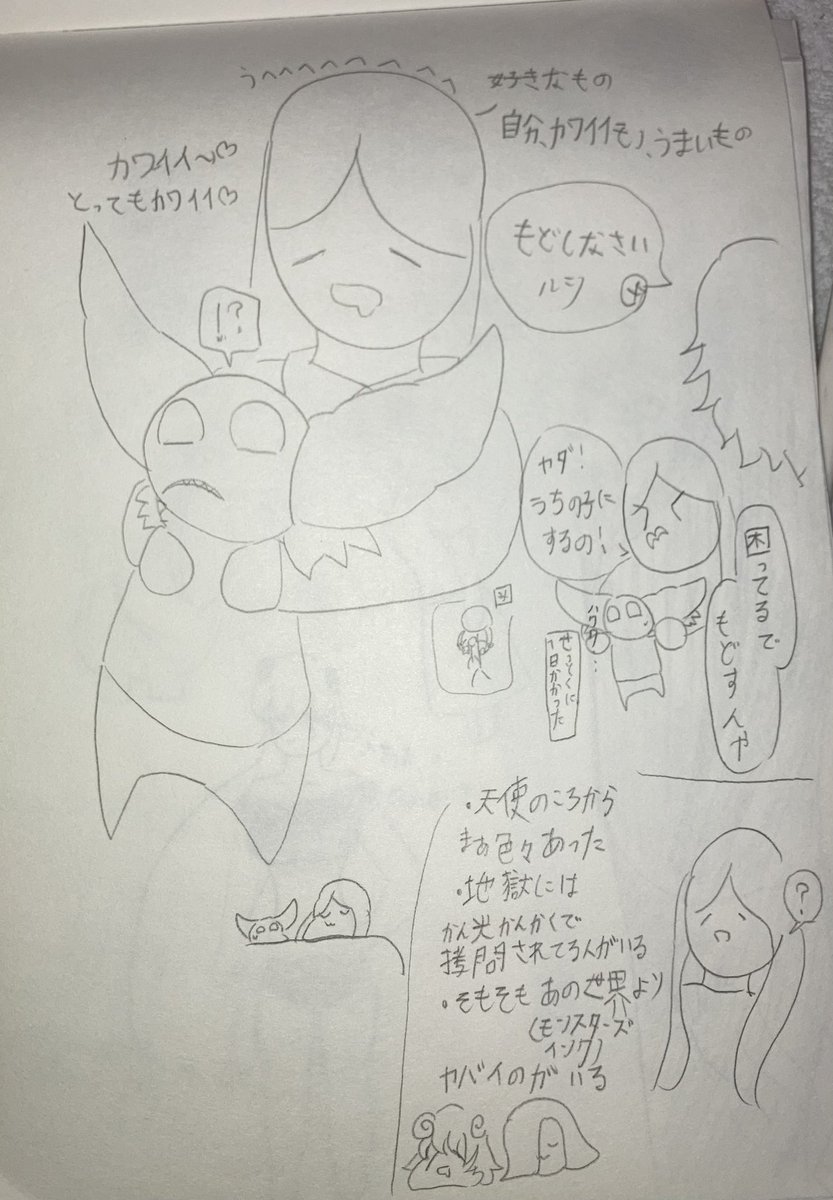 うへへへへへへへ
好きなもの
自分、カワイイモノ、うまいもの
カワイイ〜♡
とってもカワイイ♡
!?
もどしなさい
ルシ
ヤダ!
うちの子に
するの!
困ってるで
もどすんや
せっとくに
1日かかった
・天使のころから
まぁ色々あった
・地獄には
かん光かんかくで
拷問されてる人がいる
・そもそもあの世界より
(モンスターズ
インク)
ヤバイのがいる
?